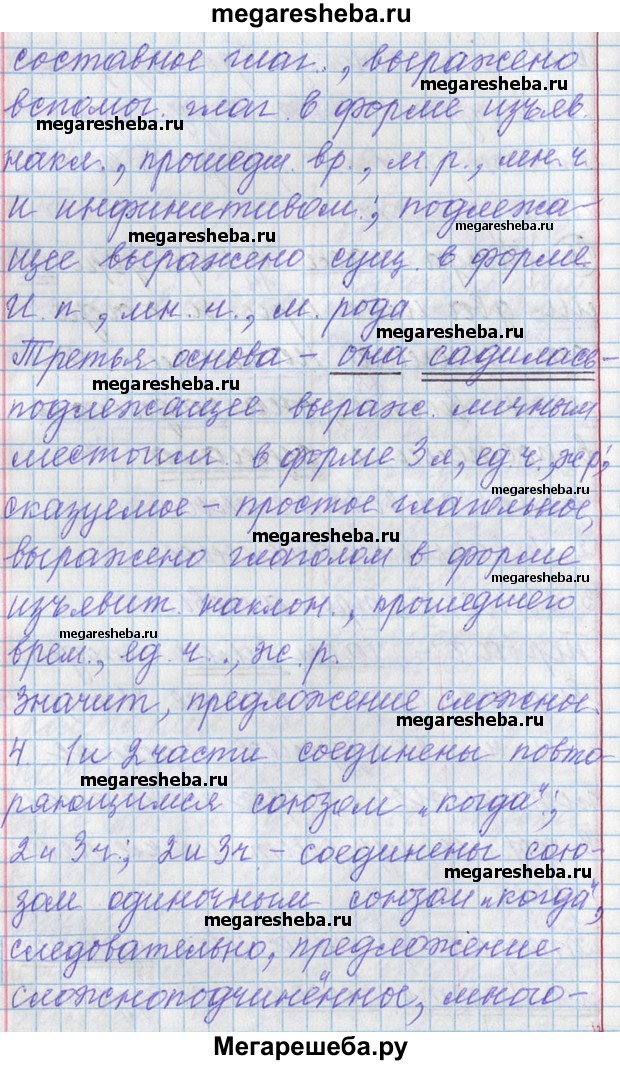 megaresheba.ru
составное глаг., выражено
megaresheba.ru
вспомог. глаг. в форме изъяв.
megaresheba.ru
накл., прошедш. вр., м.р., мн.ч
и инфинитивом; подлежа-
megaresheba.ru
щее выражено сущ. в форме
И.п., мн.ч., м. рода
megaresheba.ru
Третья основа – она садилась –
megaresheba.ru
подлежащее выраж. личным
местоим. в форме 3 л, ед.ч., ж.р;
megaresheba.ru
сказуемое – простое глагольное,
megaresheba.ru
выражено глаголом в форме
изъявит. наклон., прошедшего
megaresheba.ru
врем., ед.ч., ж.р.
Значит, предложение сложны.
megaresheba.ru
4. 1 и 2 части соединены повто-
megaresheba.ru
ряющимся союзом „когда“;
2 и 3 ч.; 2 и 3 ч – соединены сою-
megaresheba.ru
зом одиночным союзом „когда“,
megaresheba.ru
следовательно, предложение
сложноподчинённое, много-
Мегарешеба.ру